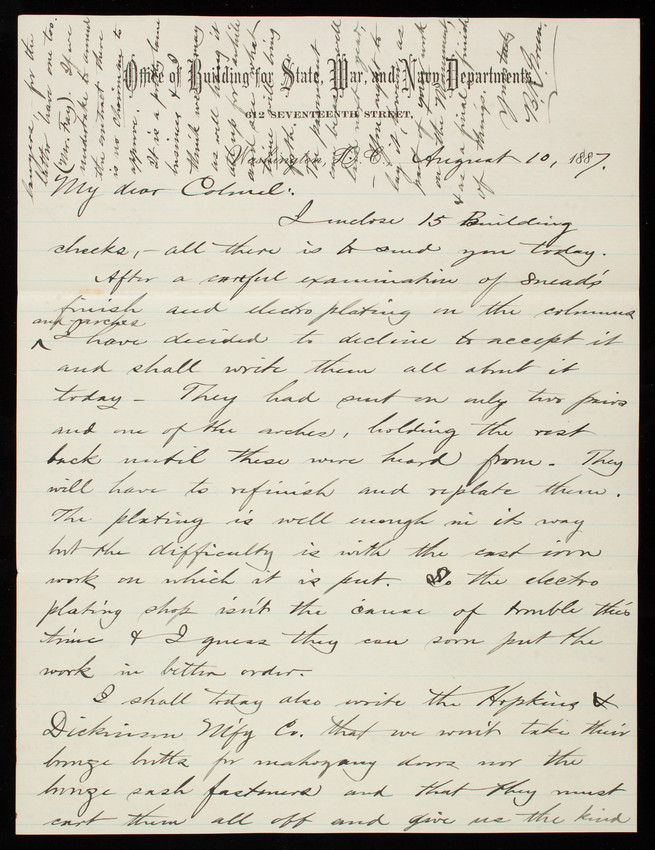 Office of Building for State, War, and Navy Departments,
612 SEVENTEENTH STREET,
Washington, D.C., August 10, 1887.
My dear Colonel:
I inclose 15 Building
checks, – all there is to send you today.
After a careful examination of Snead's
finish and electro plating on the columns
and arches
I have decided to decline to accept it
and shall write them all about it
today – They had sent on only two pairs
and one of the arches, holding the rest
back until these were heard from. They
will have to refinish and replate them.
The plating is well enough in its way
but the difficulty is with the cast iron
work on which it is put. So the electro
plating shop isn't the cause of trouble this
time & I guess they can soon put the
work in better order.
I shall today also write the Hopkins &
Dickinson M'f'g Co. that we won't take their
bronze butts for mahogany doors nor the
bronze sash fasteners and that they must
cart them all off and give us the kind
for the
letter have one too.
(Mr. Fay). If we
undertake to annul
the contract there
is no
approve.
It is a
business & I
think we may
as well hang it
up for a while
and see what
time will bring
forth.
The pavement
will
next year,
– You ought to
lay it, some, as
part of your work
on the Monument
& as a final finish
of things.
Yours truly
B. R. Green.